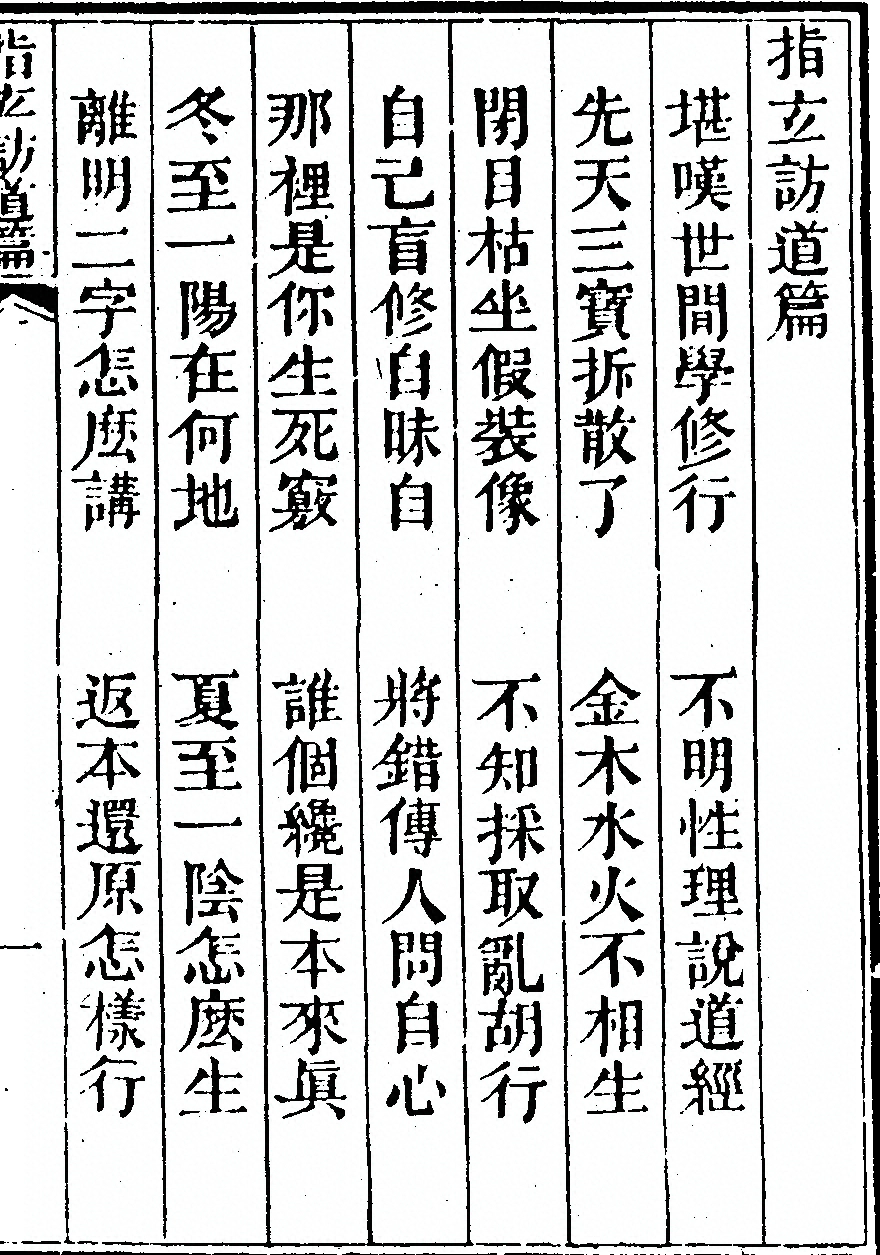 指玄訪道篇
堪嘆世間學修行　不明性理說道經
先天三寶拆散了　金木水火不相生
閉目枯坐假裝像　不知採取亂胡行
自己盲修自昧自　將錯傳人問自心
那裡是你生死竅　誰個纔是本來眞
冬至一陽在何地　夏至一陰怎麽生
離明二字怎麽講　返本還原怎樣行
指玄訪道篇
一